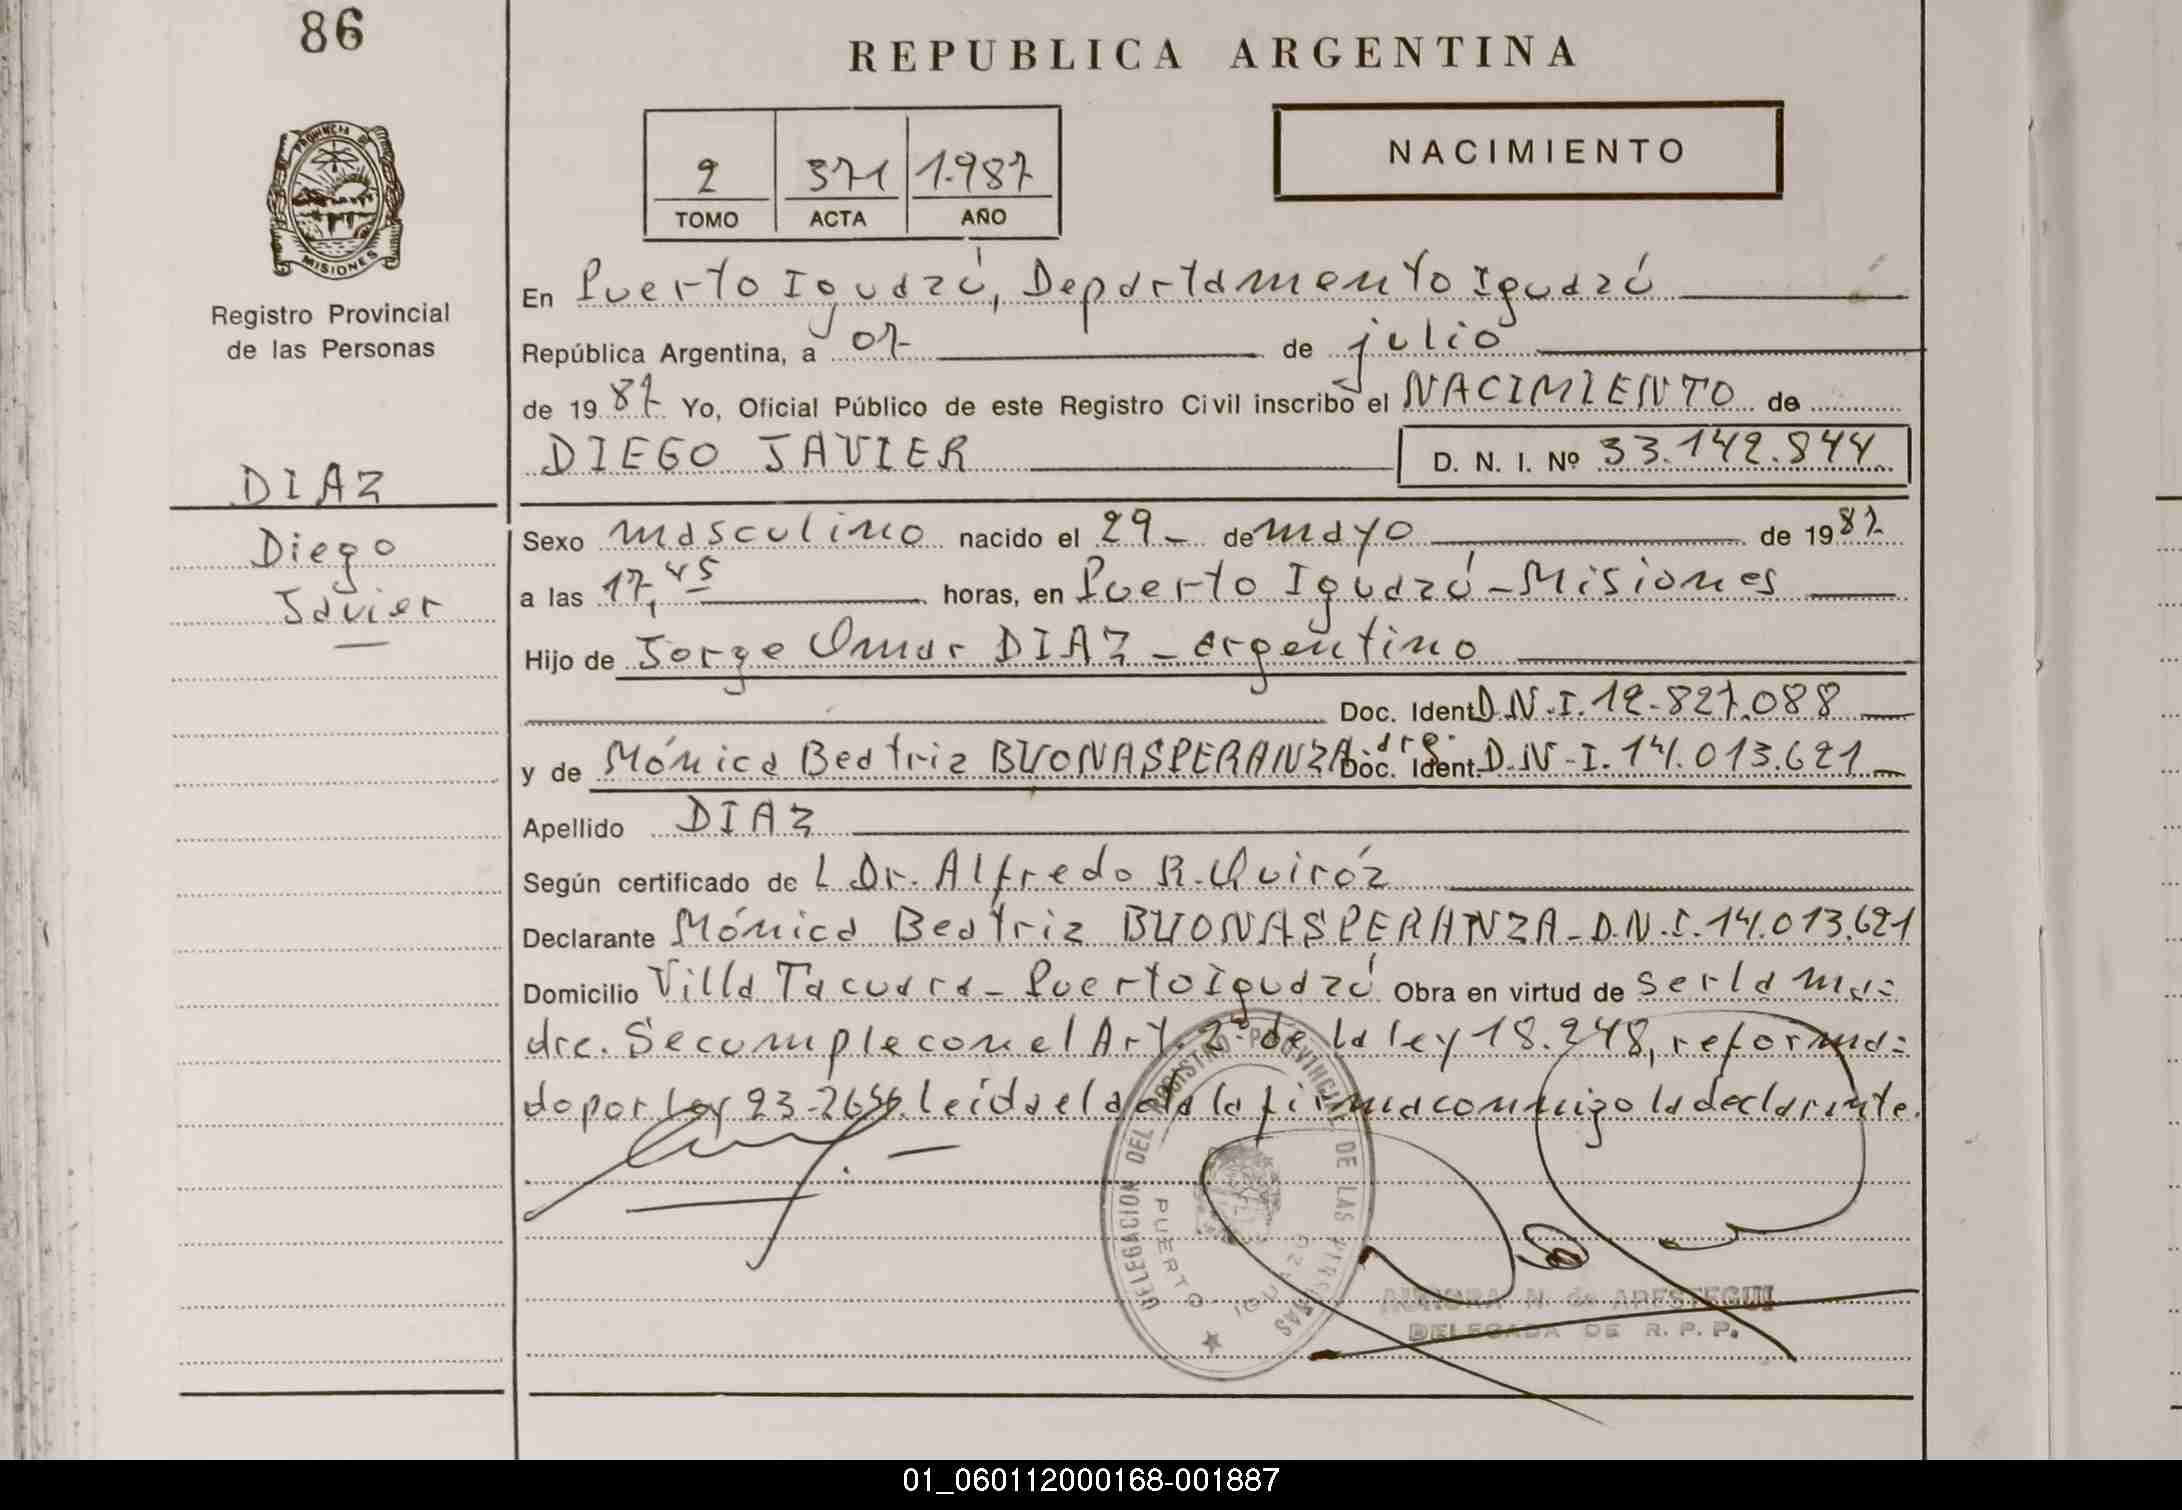 86
REPUBLICA ARGENTINA
PROVINCIA DE
MISIONES
2 371 1.987
TOMO ACTA AÑO
NACIMIENTO
Registro Provincial
de las Personas
En Puerto Iguazú, Departamento Iguazú
República Argentina, a 07 de julio
de 1987 Yo, Oficial Público de este Registro Civil inscribo el NACIMIENTO de
DIEGO JAVIER D. N. I. Nº 33.142.844
DIAZ
Diego
Javier
Sexo masculino nacido el 29 de mayo de 1987
a las 17,45 horas, en Puerto Iguazú - Misiones
Hijo de Jorge Omar DIAZ - argentino
Doc. Ident. D.N.I. 12.827.088
y de Mónica Beatriz BUONASPERANZA - arg. Doc. Ident. D.N.I. 14.013.621
Apellido DIAZ
Según certificado de L Dr. Alfredo R. Quiróz
Declarante Mónica Beatriz BUONASPERANZA - D.N.I. 14.013.621
Domicilio Villa Tacuara - Puerto Iguazú Obra en virtud de ser la ma=
dre. Se cumple con el Art. 2º de la ley 18.248, reforma=
do por Ley leída el acta la firma conmigo la declarante.
DELEGACION DEL REGISTRO PROVINCIAL DE LAS PERSONAS
PUERTO IGUAZU
AURORA N. de ARESTEGUI
DELEGADA DE R. P. P.
01_060112000168-001887